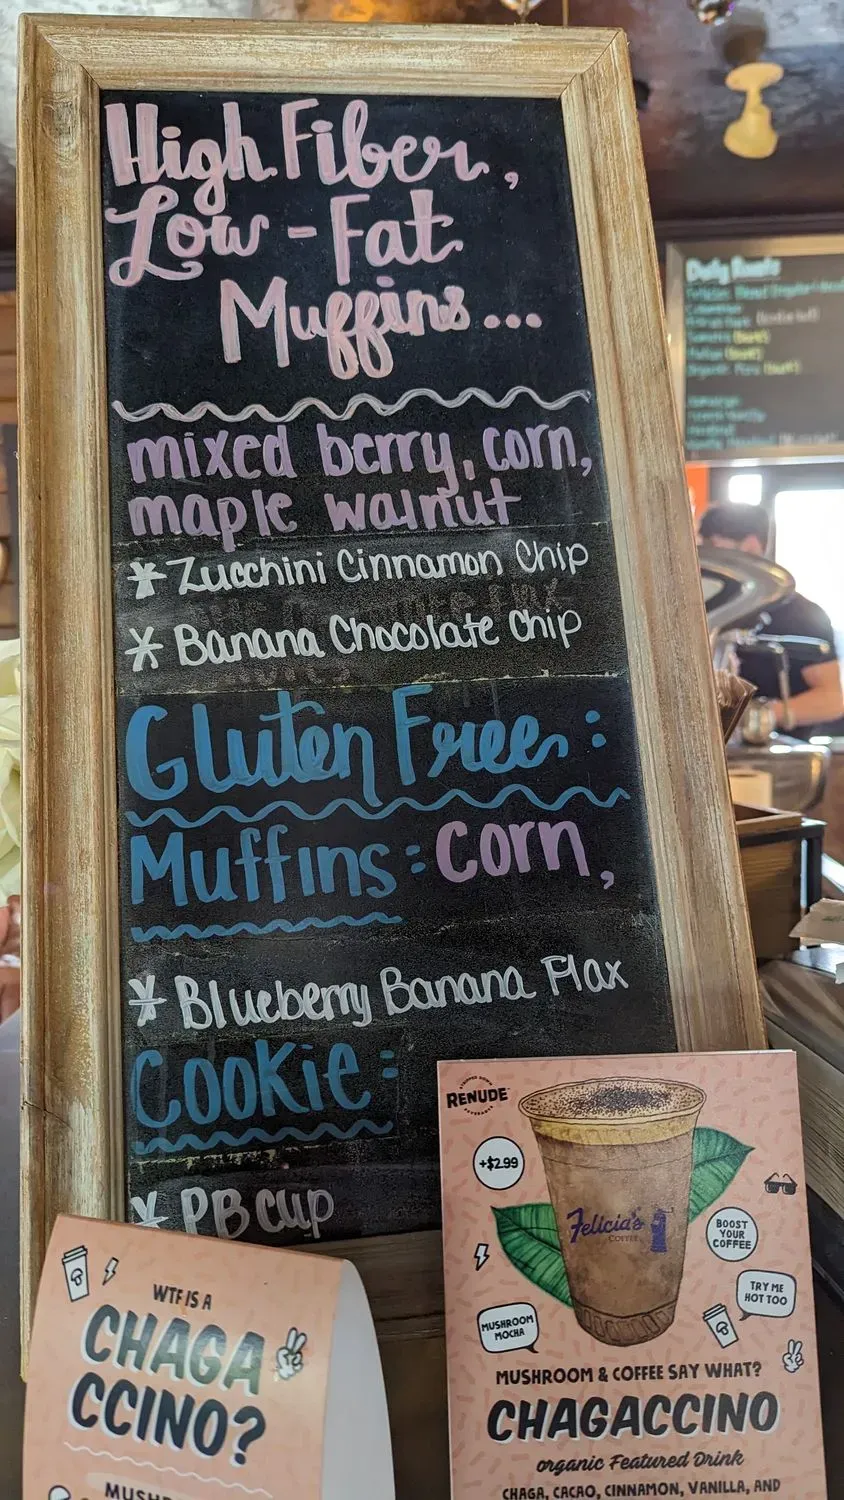 High Fiber,
Low-Fat
Muffins...
mixed berry, corn,
maple walnut
* Zucchini Cinnamon Chip
* Banana Chocolate Chip
Gluten Free:
Muffins: Corn,
* Blueberry Banana Flax
Cookie:
* PB Cup
Daily Roasts
RENUDE
+$2.99
Felicia's
COFFEE
BOOST
YOUR
COFFEE
TRY ME
HOT TOO
MUSHROOM
MOCHA
MUSHROOM & COFFEE SAY WHAT?
CHAGACCINO
organic Featured Drink
CHAGA, CACAO, CINNAMON, VANILLA, AND
WTF IS A
CHAGA
CCINO?